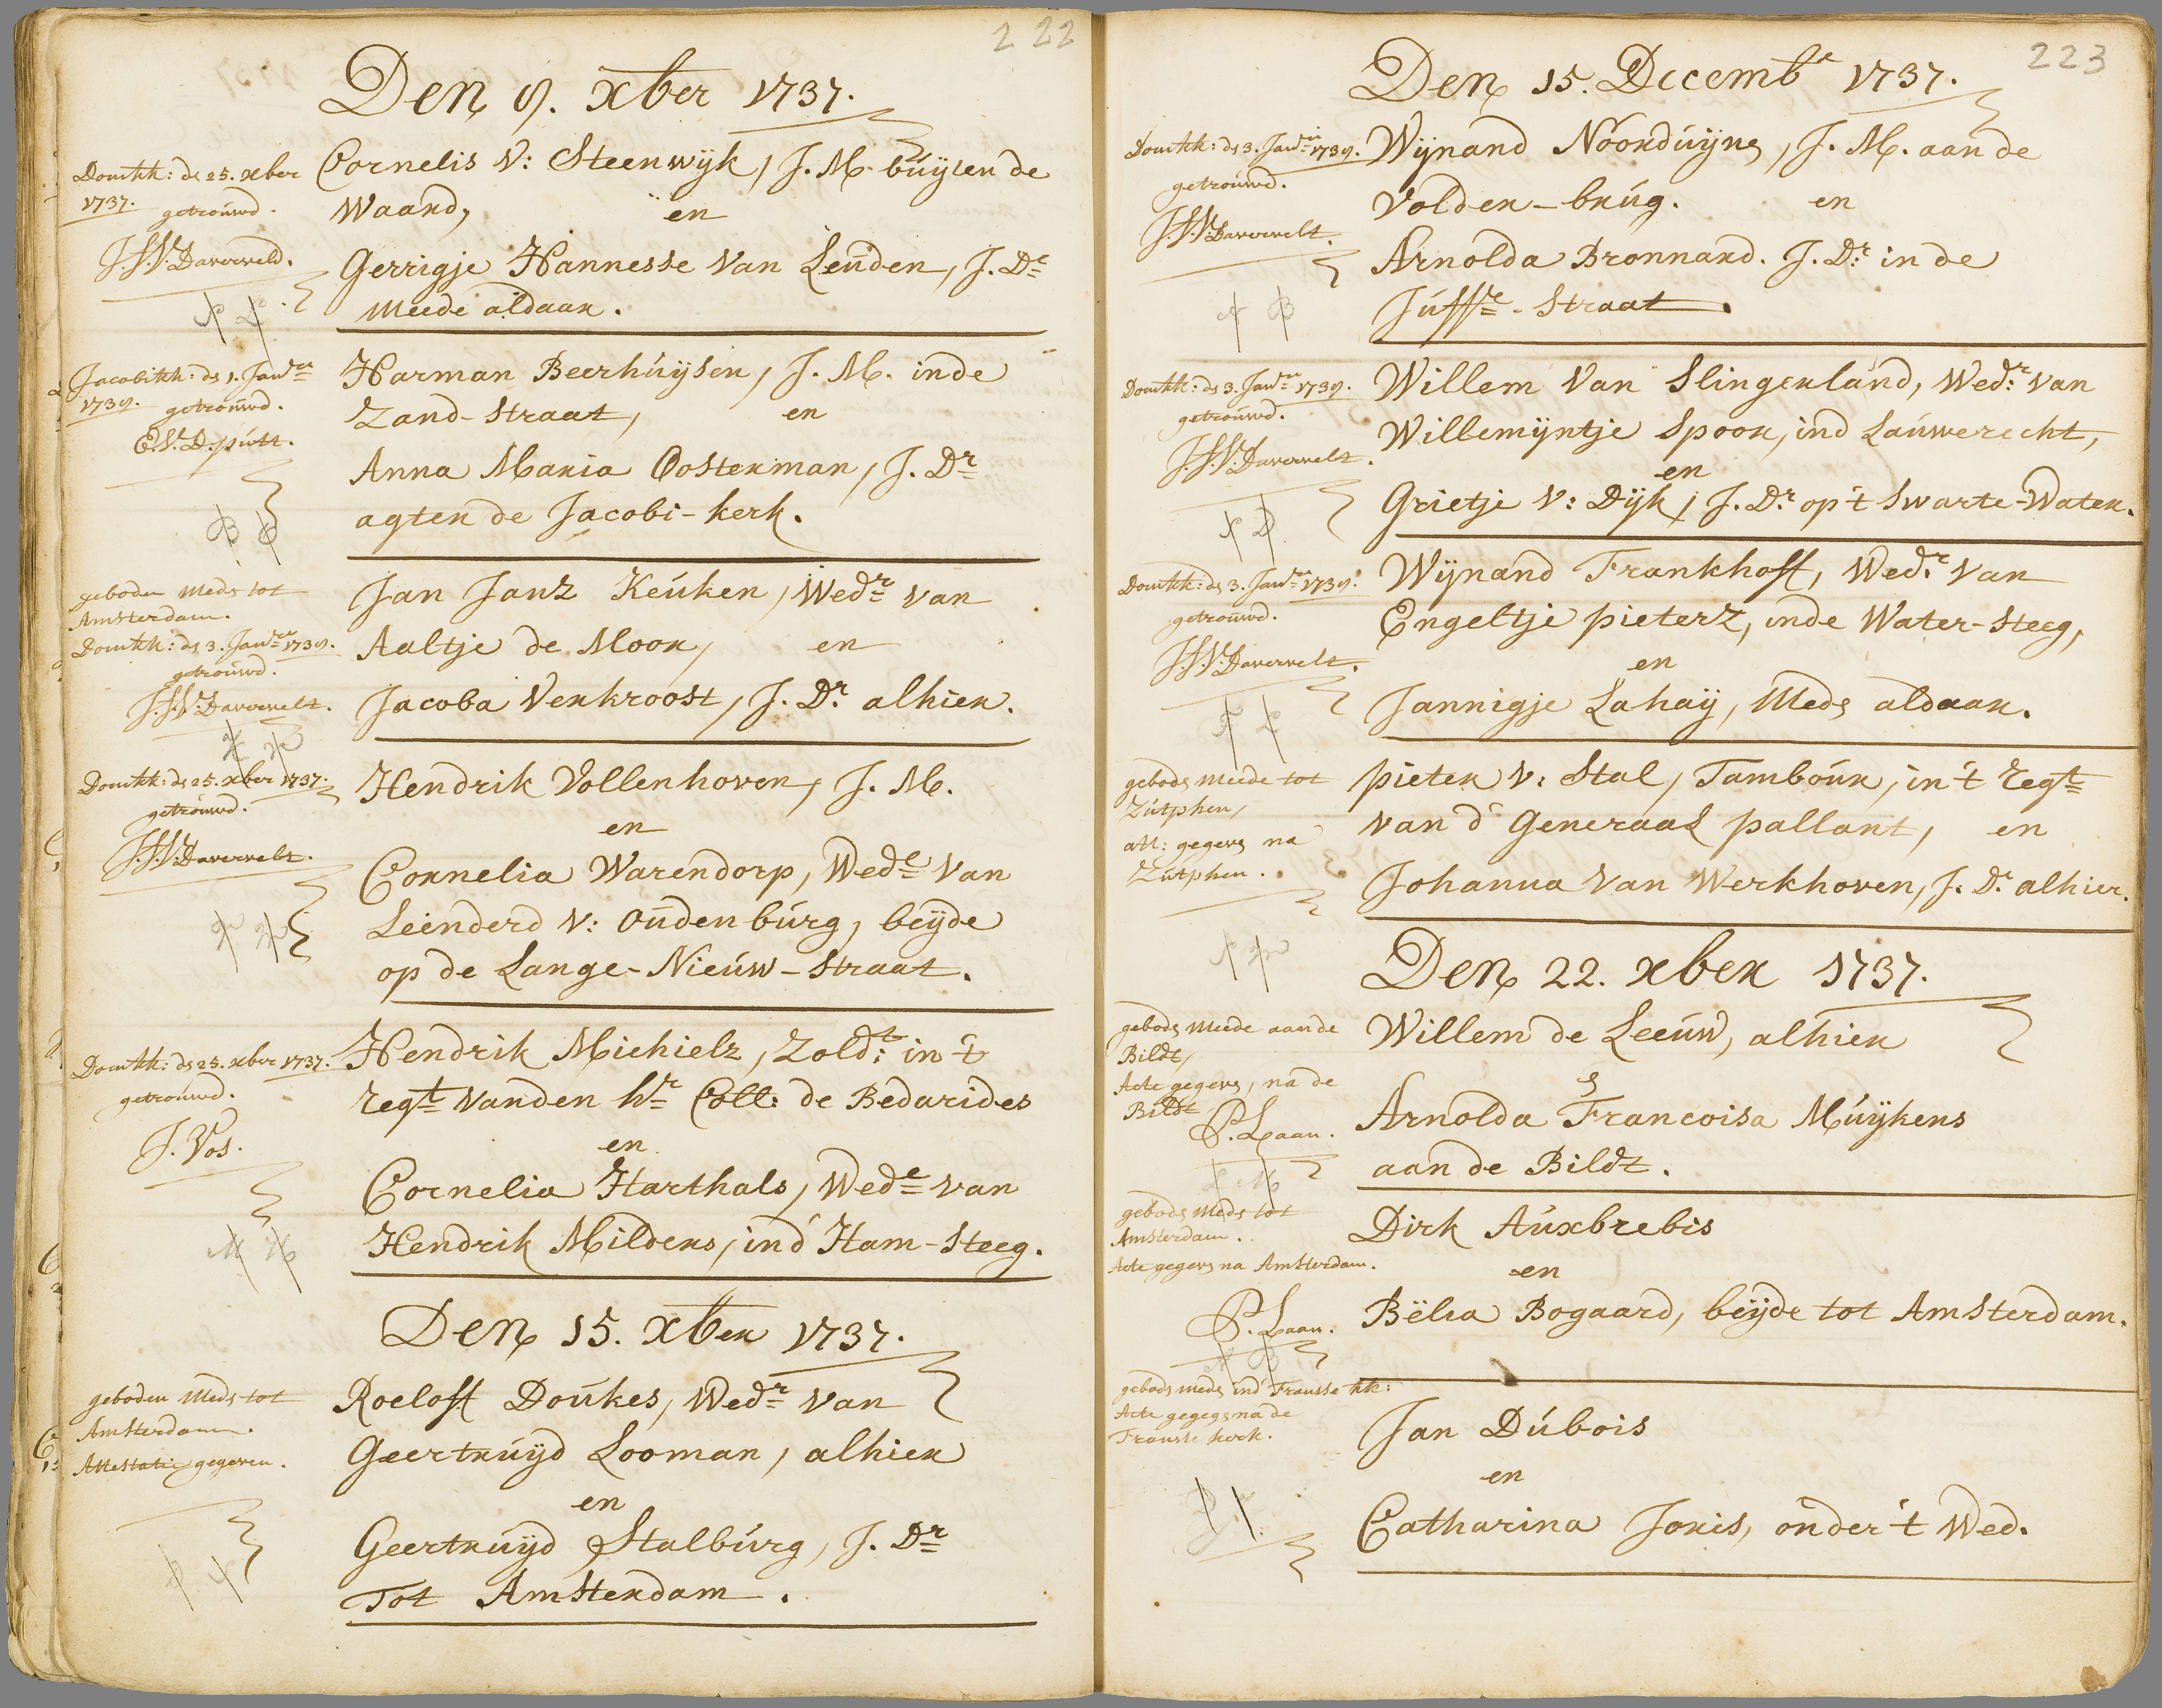 222
Den 8. xber 1737.
Domkk: de 25. xber
1737. getrouwd.
J.J.V: Daverveld.
Cornelis v: Steenwijk, J. M. buijten de
Waard, en
Gerrigje Hannesse van Leuden, J. Dr
meede aldaar.
Jacobikk: de 1. Janr
1738. getrouwd.
E.V.D. putt.
Harman Beerhuijsen, J. M. inde
Zand-Straat, en
Anna Maria Oosterman, J. Dr
agter de Jacobi-kerk.
geboden mede tot
Amsterdam.
Domkk: de 3. Janr 1738.
getrouwd.
J.J.V: Davervelt.
Jan Janz Keuken, Wedr van
Aaltje de Moor, en
Jacoba Verkroost, J. Dr alhier.
Domkk: de 25. xber 1737.
getrouwd.
J.J.V: Davervelt.
Hendrik Vollenhoven, J. M.
en
Cornelia Warendorp, Wede van
Leenderd v: Oudenburg, beijde
op de Lange-Nieuw-Straat.
Domkk: de 25. xber 1737.
getrouwd.
J. Vos.
Hendrik Michielz, Zoldt in 't
regt vanden hr Coll: de Bedarides
en
Cornelia Harthals, Wede van
Hendrik Milders, ind' Ham-Steeg.
Den 15. xber 1737.
geboden mede tot
Amsterdam.
Attestatie gegeven.
Roeloff Doukes, Wedr van
Geertruijd Looman, alhier
en
Geertruijd Stalburg, J. Dr
Tot Amsterdam.
223
Den 15. Decembr 1737.
Domkk: de 3. Janri 1738.
getrouwd.
J.J.V: Davervelt.
Wijnand Noorduijn, J. M. aan de
Volder-brug. en
Arnolda Bronnard. J. Dr in de
Juffre-Straat.
Domkk: de 3. Janr 1738.
getrouwd.
J.J.V: Davervelt.
Willem van Slingerland, Wedr van
Willemijntje Spoor, ind Lauwerecht,
en
Grietje v: Dijk, J. Dr op 't Swarte-Water.
Domkk: de 3. Janr 1738.
getrouwd.
J.J.V: Davervelt.
Wijnand Frankhoff, Wedr van
Engeltje pieterz, inde Water-Steeg,
en
Jannigje Lahaij, mede aldaar.
gebode meede tot
Zutphen,
att: gegeve na
Zutphen.
pieter v: Stal, Tambour, in 't regt
van d' Generaal pallant, en
Johanna van Werkhoven, J. Dr alhier.
Den 22. xber 1737.
gebode meede aan de
Bildt,
Acte gegeve, na de
Bildt
P. Laan.
Willem de Leeuw, alhier
&
Arnolda Francoisa Muijkens
aan de Bildt.
gebode mede tot
Amsterdam.
Acte gegeve na Amsterdam.
P. Laan.
Dirk Auxbrebis
en
Bëlia Bogaard, beijde tot Amsterdam.
gebode mede ind' Fransse kk:
Acte gegeve na de
Fransse kerk.
Jan Dubois
en
Catharina Joris, onder 't Wed.